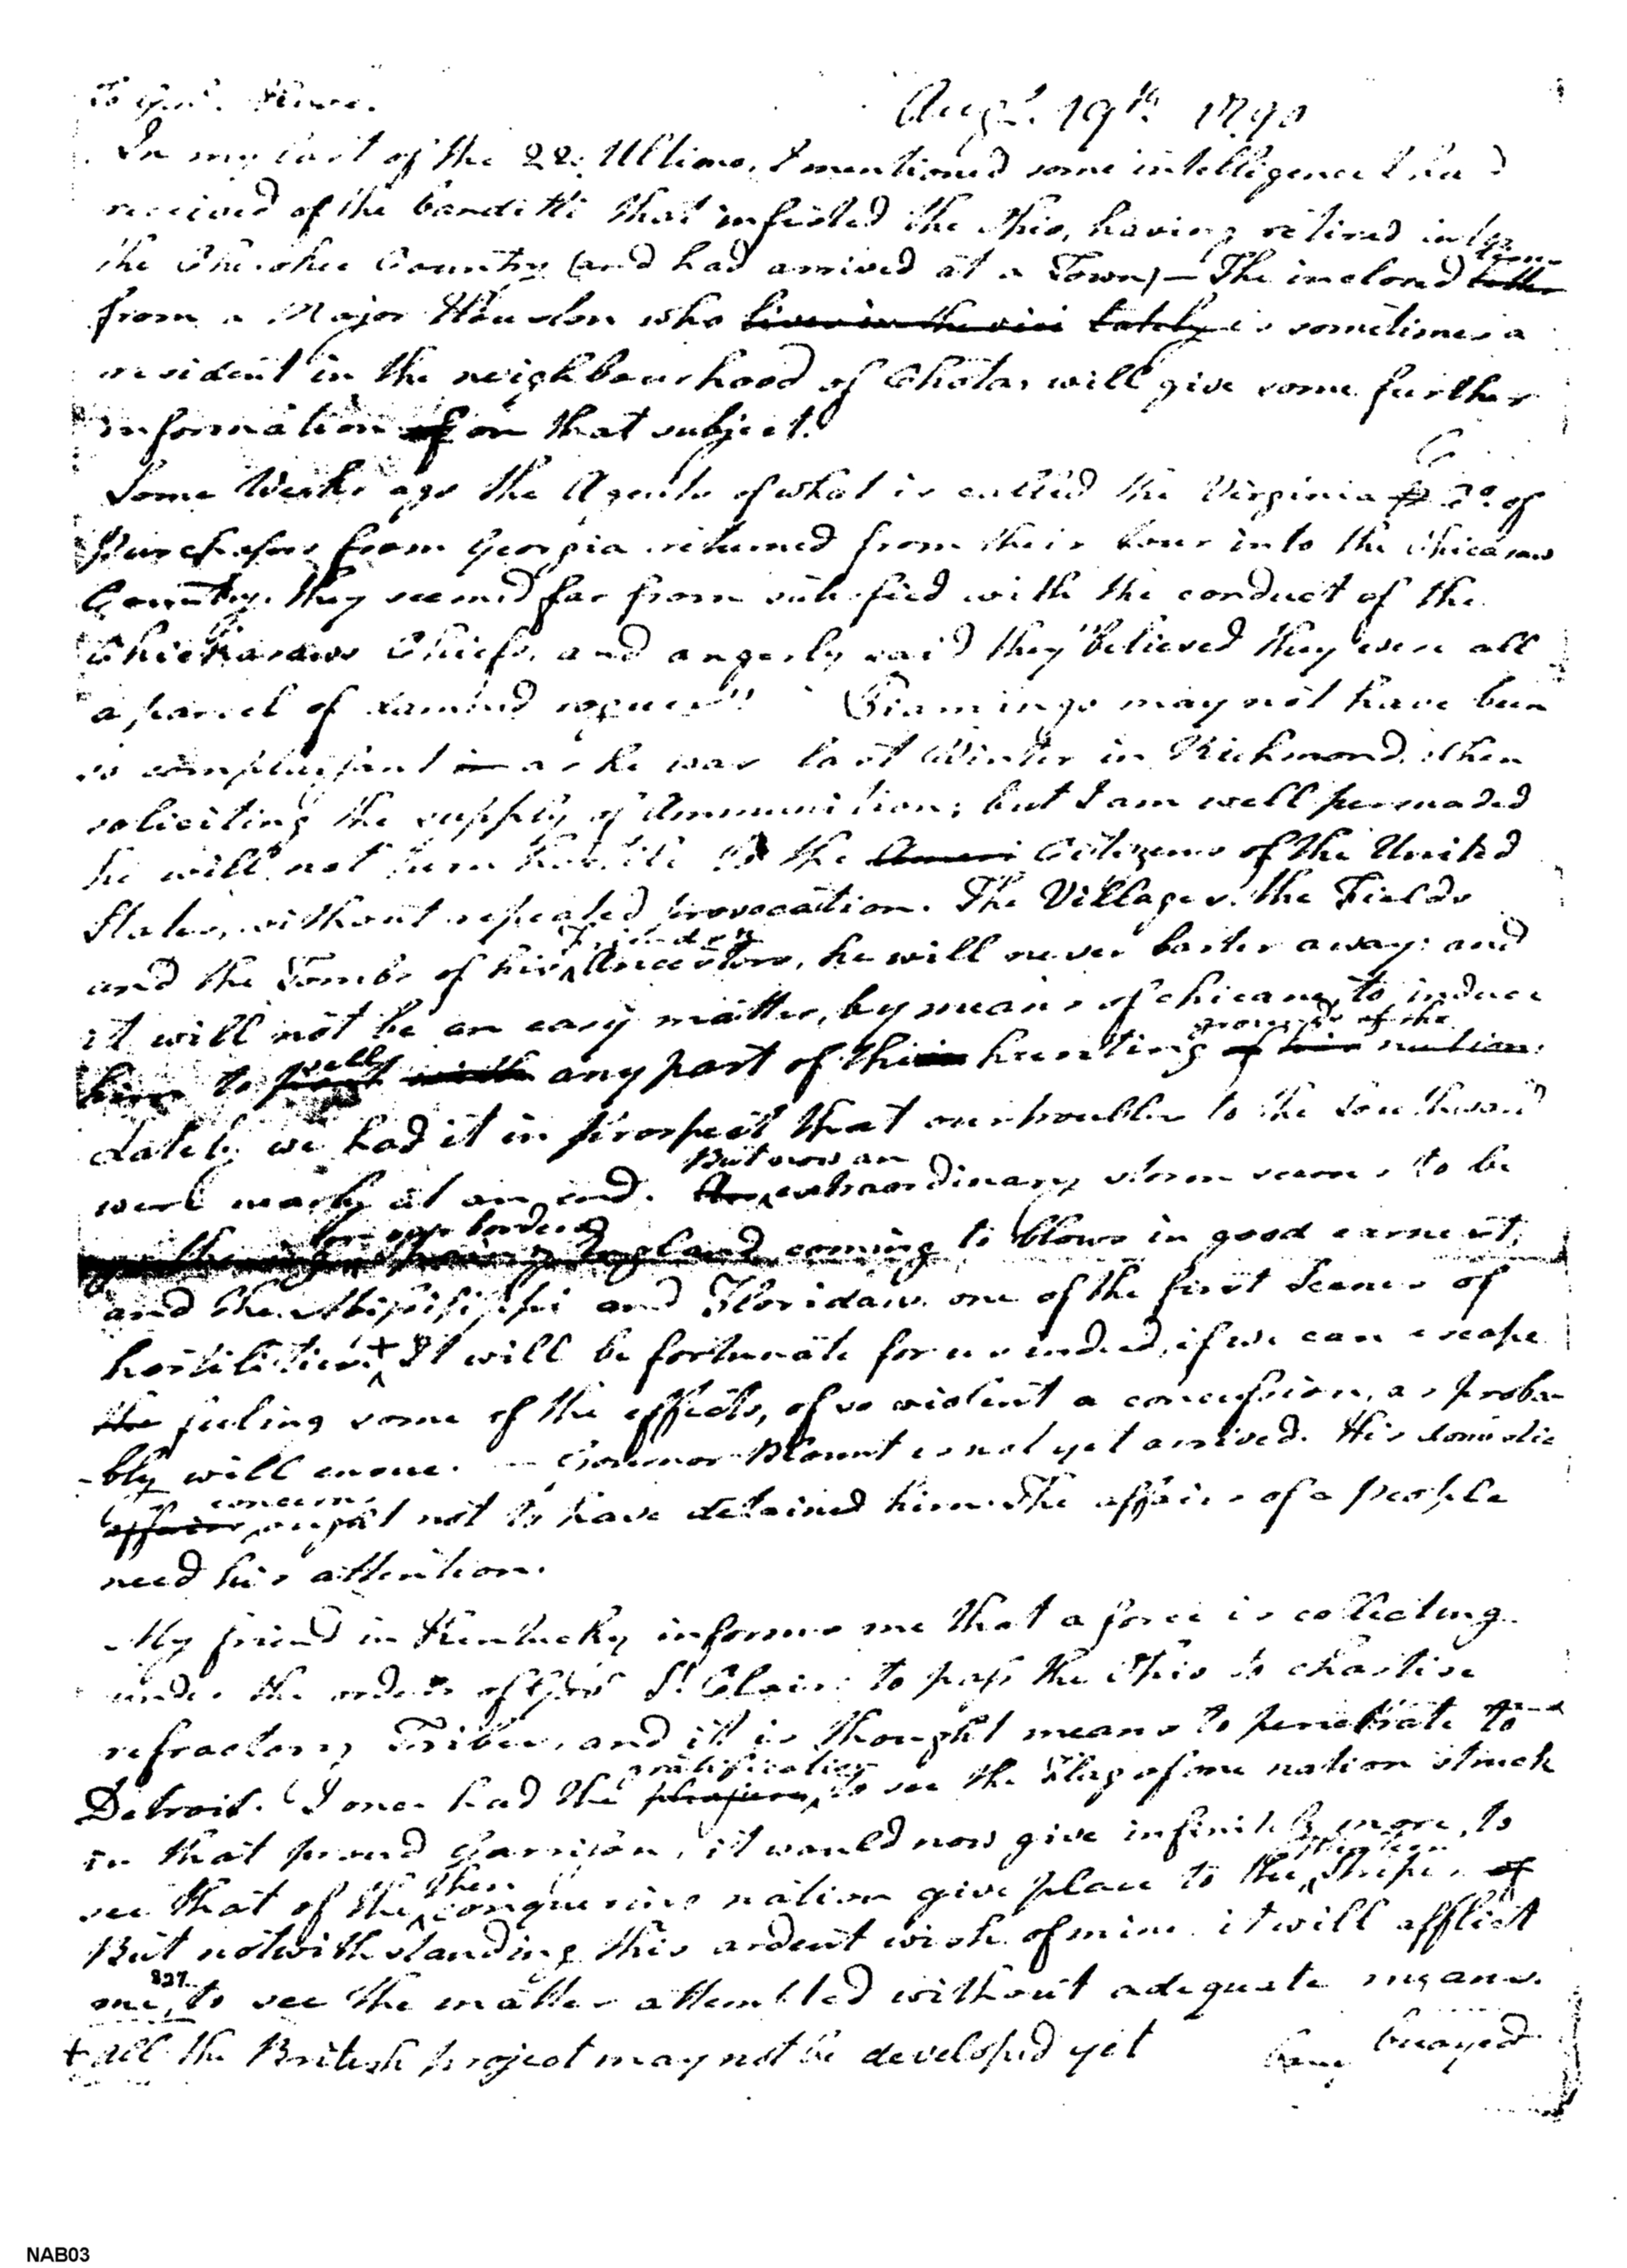 Augt. 19th. 1790
In my last of the 22. Ultimo, I mentioned some intelligence I had
received of the banditti that infested the Ohio, having retired into
the Cherokee Country (and had arrived at a Town) — The inclosed letter
from a Major Houston who lives in the vici lately is sometimes a
resident in the neighbourhood of Chota, will give some further
information of on that subject.
Some Weeks ago the Agents of what is called the Virginia Co. of
Purchasers from Georgia returned from their tour into the Chicasaw
Country. they seemed far from satisfied with the conduct of the
Chickasaws Chiefs, and angerly said they "believed they were all
a parcel of damned rogues" Piamingo may not have been
so complaisant in as he was last Winter in Richmond when
soliciting the supply of Ammunition; but I am well persuaded
he will not turn hostile to the Ameri Citizens of the United
States, without repeated provocation. The Villages, the Fields
and the Tombs of his Ancestors, he will never barter away: and
it will not be an easy matter, by means of chicane, to induce
grounds of the
him to part with sell any part of the hunting of his nation.
Lately we had it in prospect that our troubles to the Southward
But now an
were nearly at an end. An extraordinary storm seems to be
for our borders
gathering England coming to blows in good earnest,
and the Missisippi and Floridas one of the first Scenes of
hostilities. + It will be fortunate for us indeed, if we can escape
the feeling some of the effects, of so violent a concussion, as proba-
-bly will ensue. — Governor Blount is not yet arrived. His domestic
concerns
affairs ought not to have detained him. The affairs of a people
need his attention.
My friend in Kentucky informs me that a force is collecting
under the orders of St. Clair to pass the Ohio to chastise
refractory Tribes, and it is thought means to penetrate to
gratification
Detroit. I once had the pleasure to see the Flag of one nation struck
in that proud Garrison, it would now give infinitely more, to
then thirteen
see that of the conquering nation give place to the stripes of
But notwithstanding this ardent wish of mine it will afflict
me, to see the matter attempted without adequate means.
+ all the British project may not be developed yet
NAB03